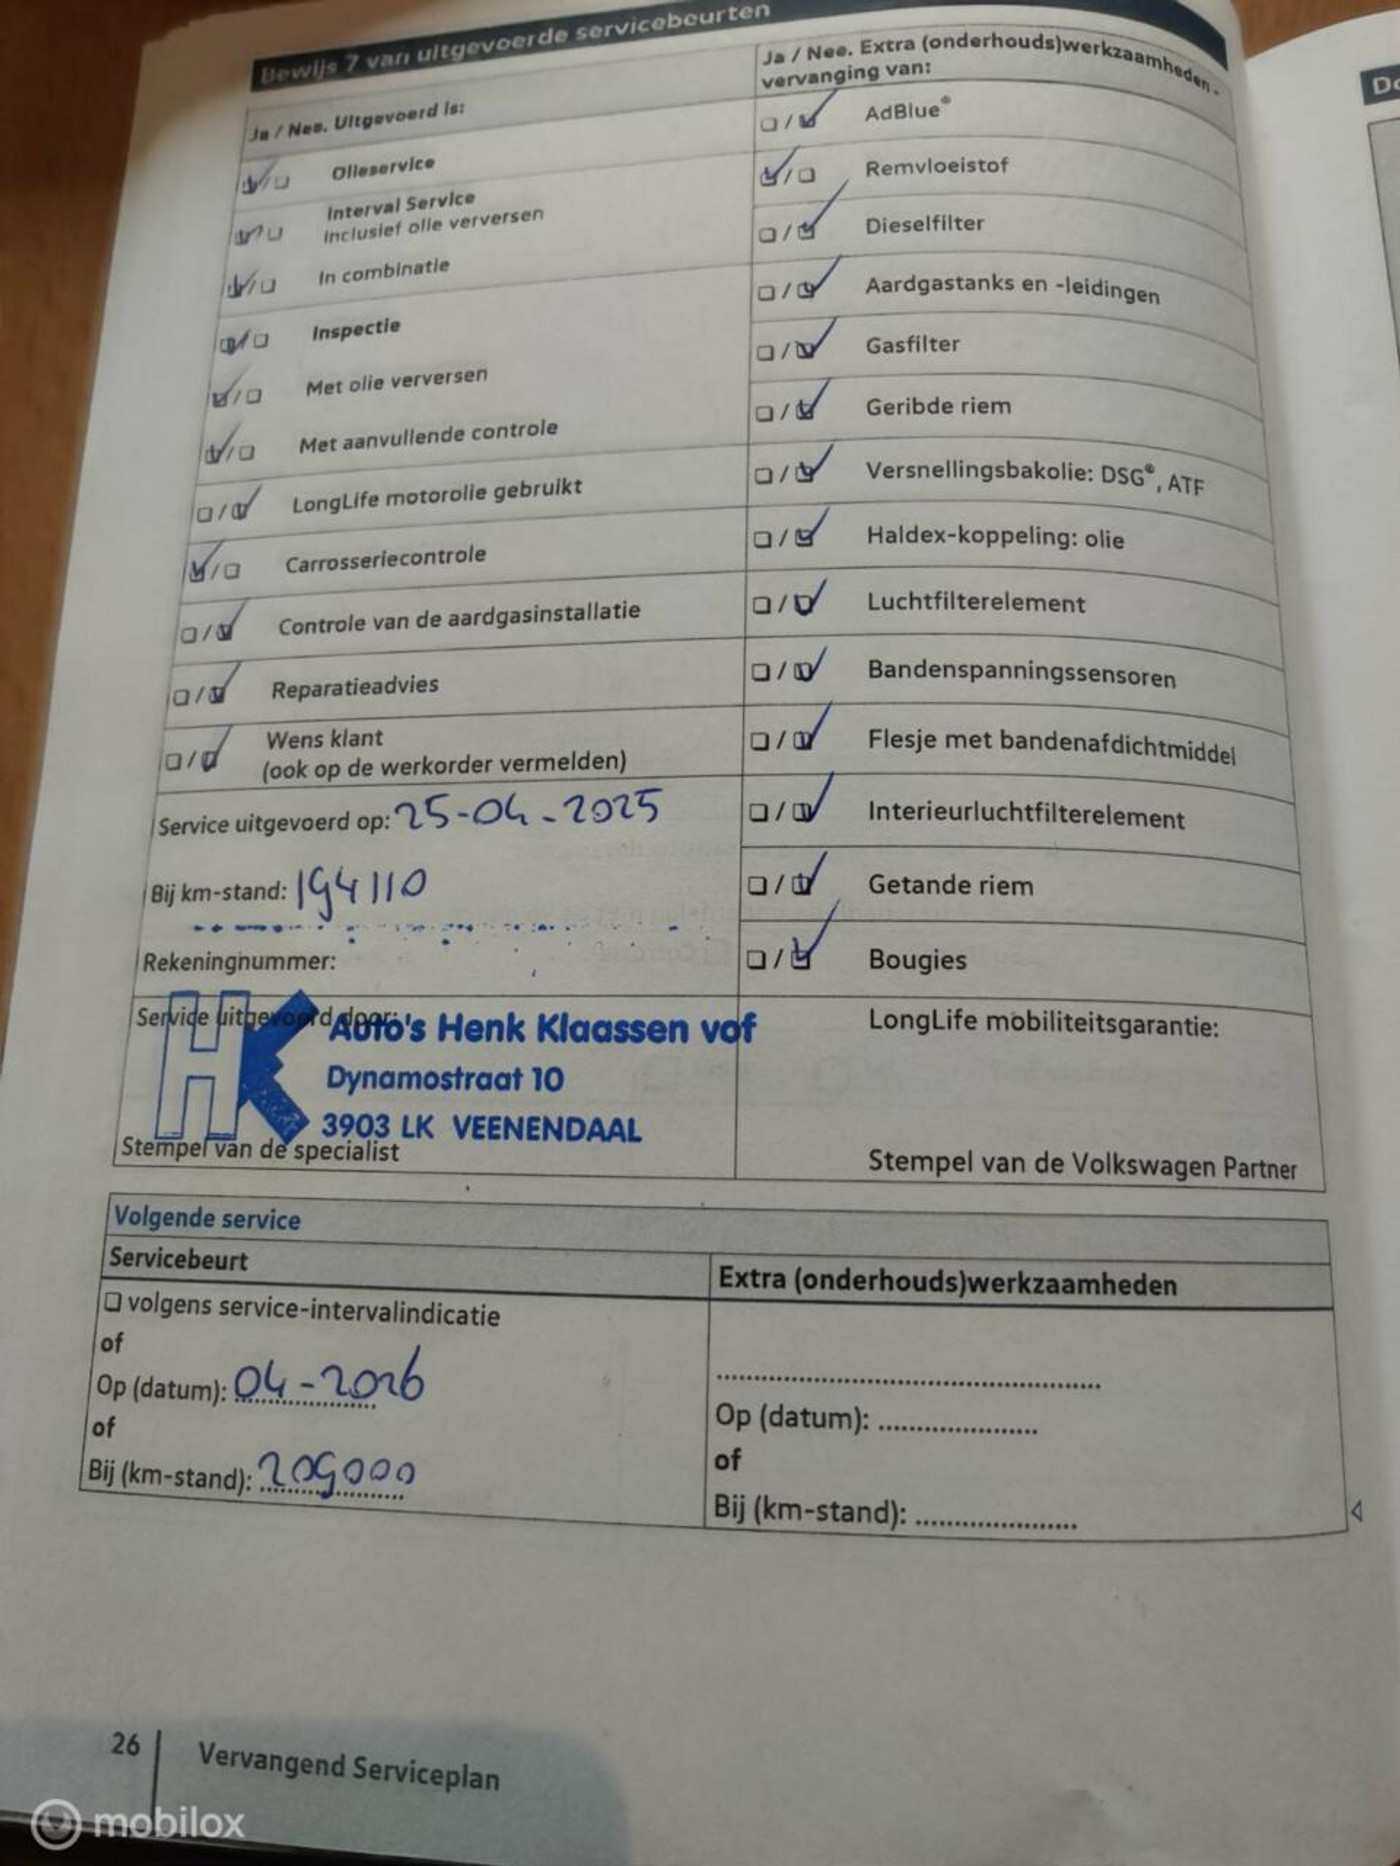 Bewijs 7 van uitgevoerde servicebeurten
Ja / Nee. Uitgevoerd is:
Olieservice
Interval Service
inclusief olie verversen
In combinatie
Inspectie
Met olie verversen
Met aanvullende controle
LongLife motorolie gebruikt
Carrosseriecontrole
Controle van de aardgasinstallatie
Reparatieadvies
Wens klant
(ook op de werkorder vermelden)
Service uitgevoerd op: 25-04-2025
Bij km-stand: 194110
Rekeningnummer:
Service uitgevoerd door:
HK
Auto's Henk Klaassen vof
Dynamostraat 10
3903 LK VEENENDAAL
Stempel van de specialist
Ja / Nee. Extra (onderhouds)werkzaamheden -
vervanging van:
AdBlue®
Remvloeistof
Dieselfilter
Aardgastanks en -leidingen
Gasfilter
Geribde riem
Versnellingsbakolie: DSG®, ATF
Haldex-koppeling: olie
Luchtfilterelement
Bandenspanningssensoren
Flesje met bandenafdichtmiddel
Interieurluchtfilterelement
Getande riem
Bougies
LongLife mobiliteitsgarantie:
Stempel van de Volkswagen Partner
Volgende service
Servicebeurt
volgens service-intervalindicatie
of
Op (datum): 04-2026
of
Bij (km-stand): 209000
Extra (onderhouds)werkzaamheden
Op (datum): ....................
of
Bij (km-stand): ....................
26
Vervangend Serviceplan
mobilox